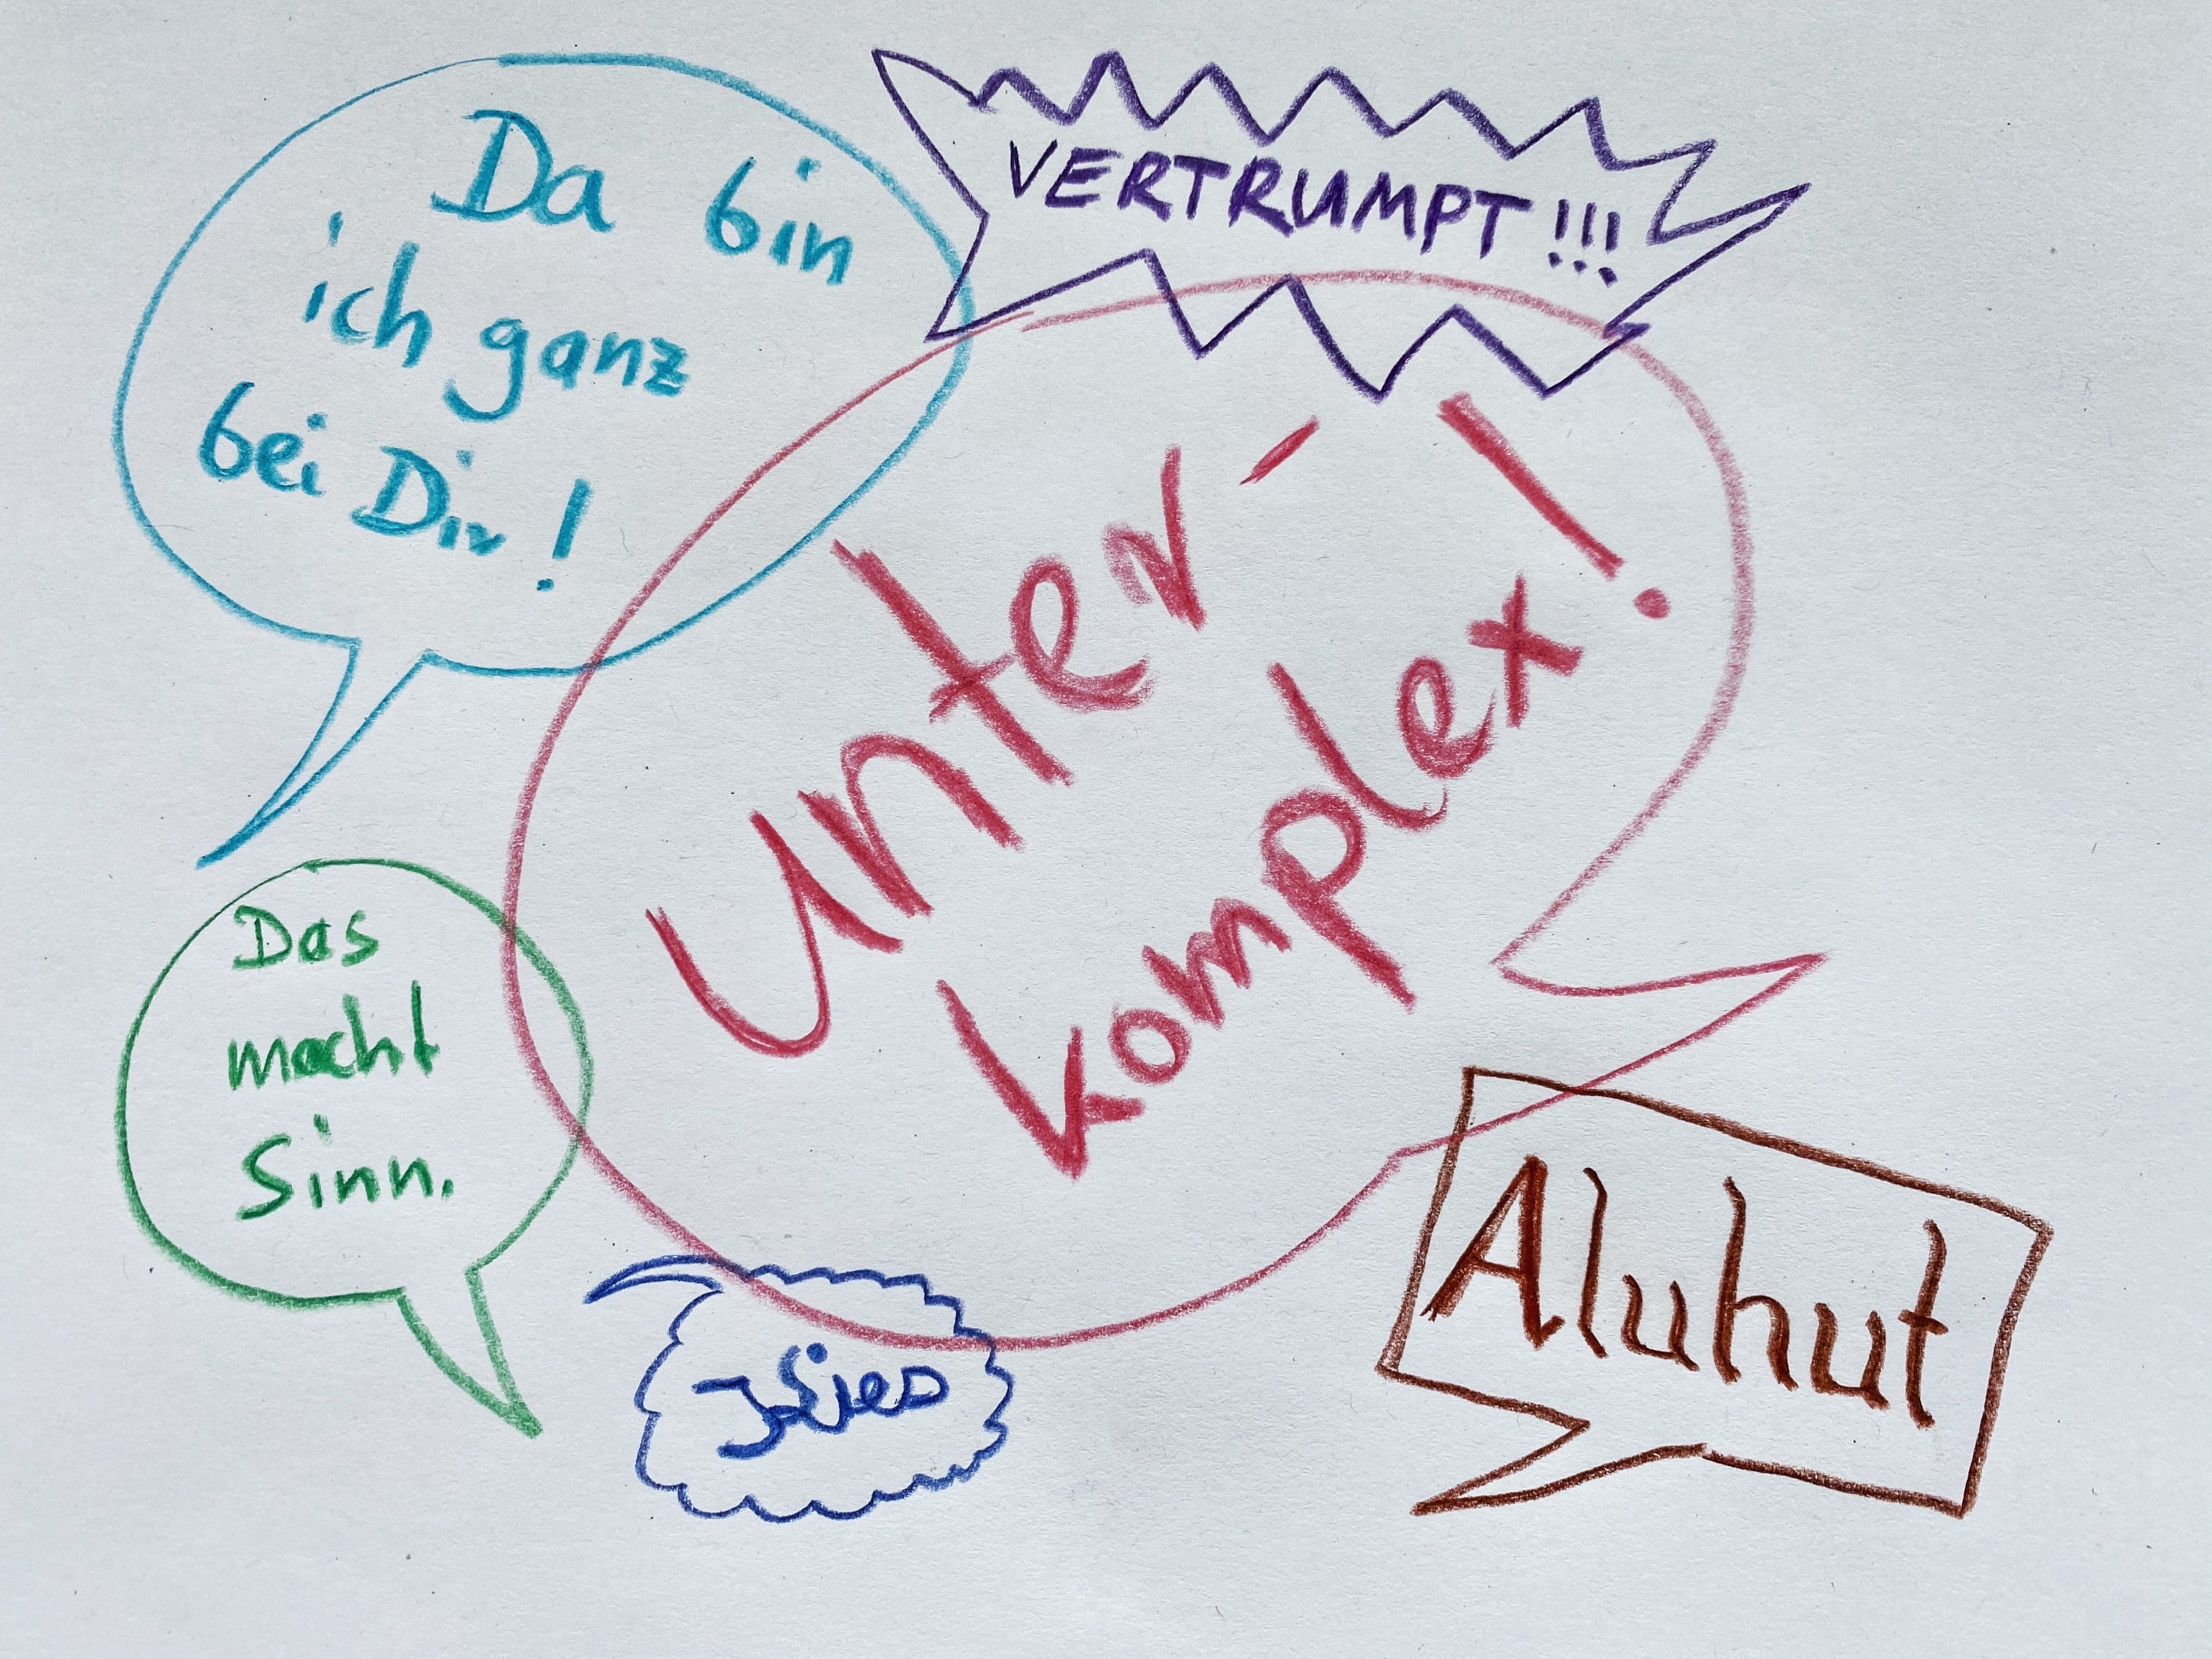 Da bin
ich ganz
bei Dir!
VERTRUMPT!!!
Unter-
komplex!
Das
macht
Sinn.
Aluhut